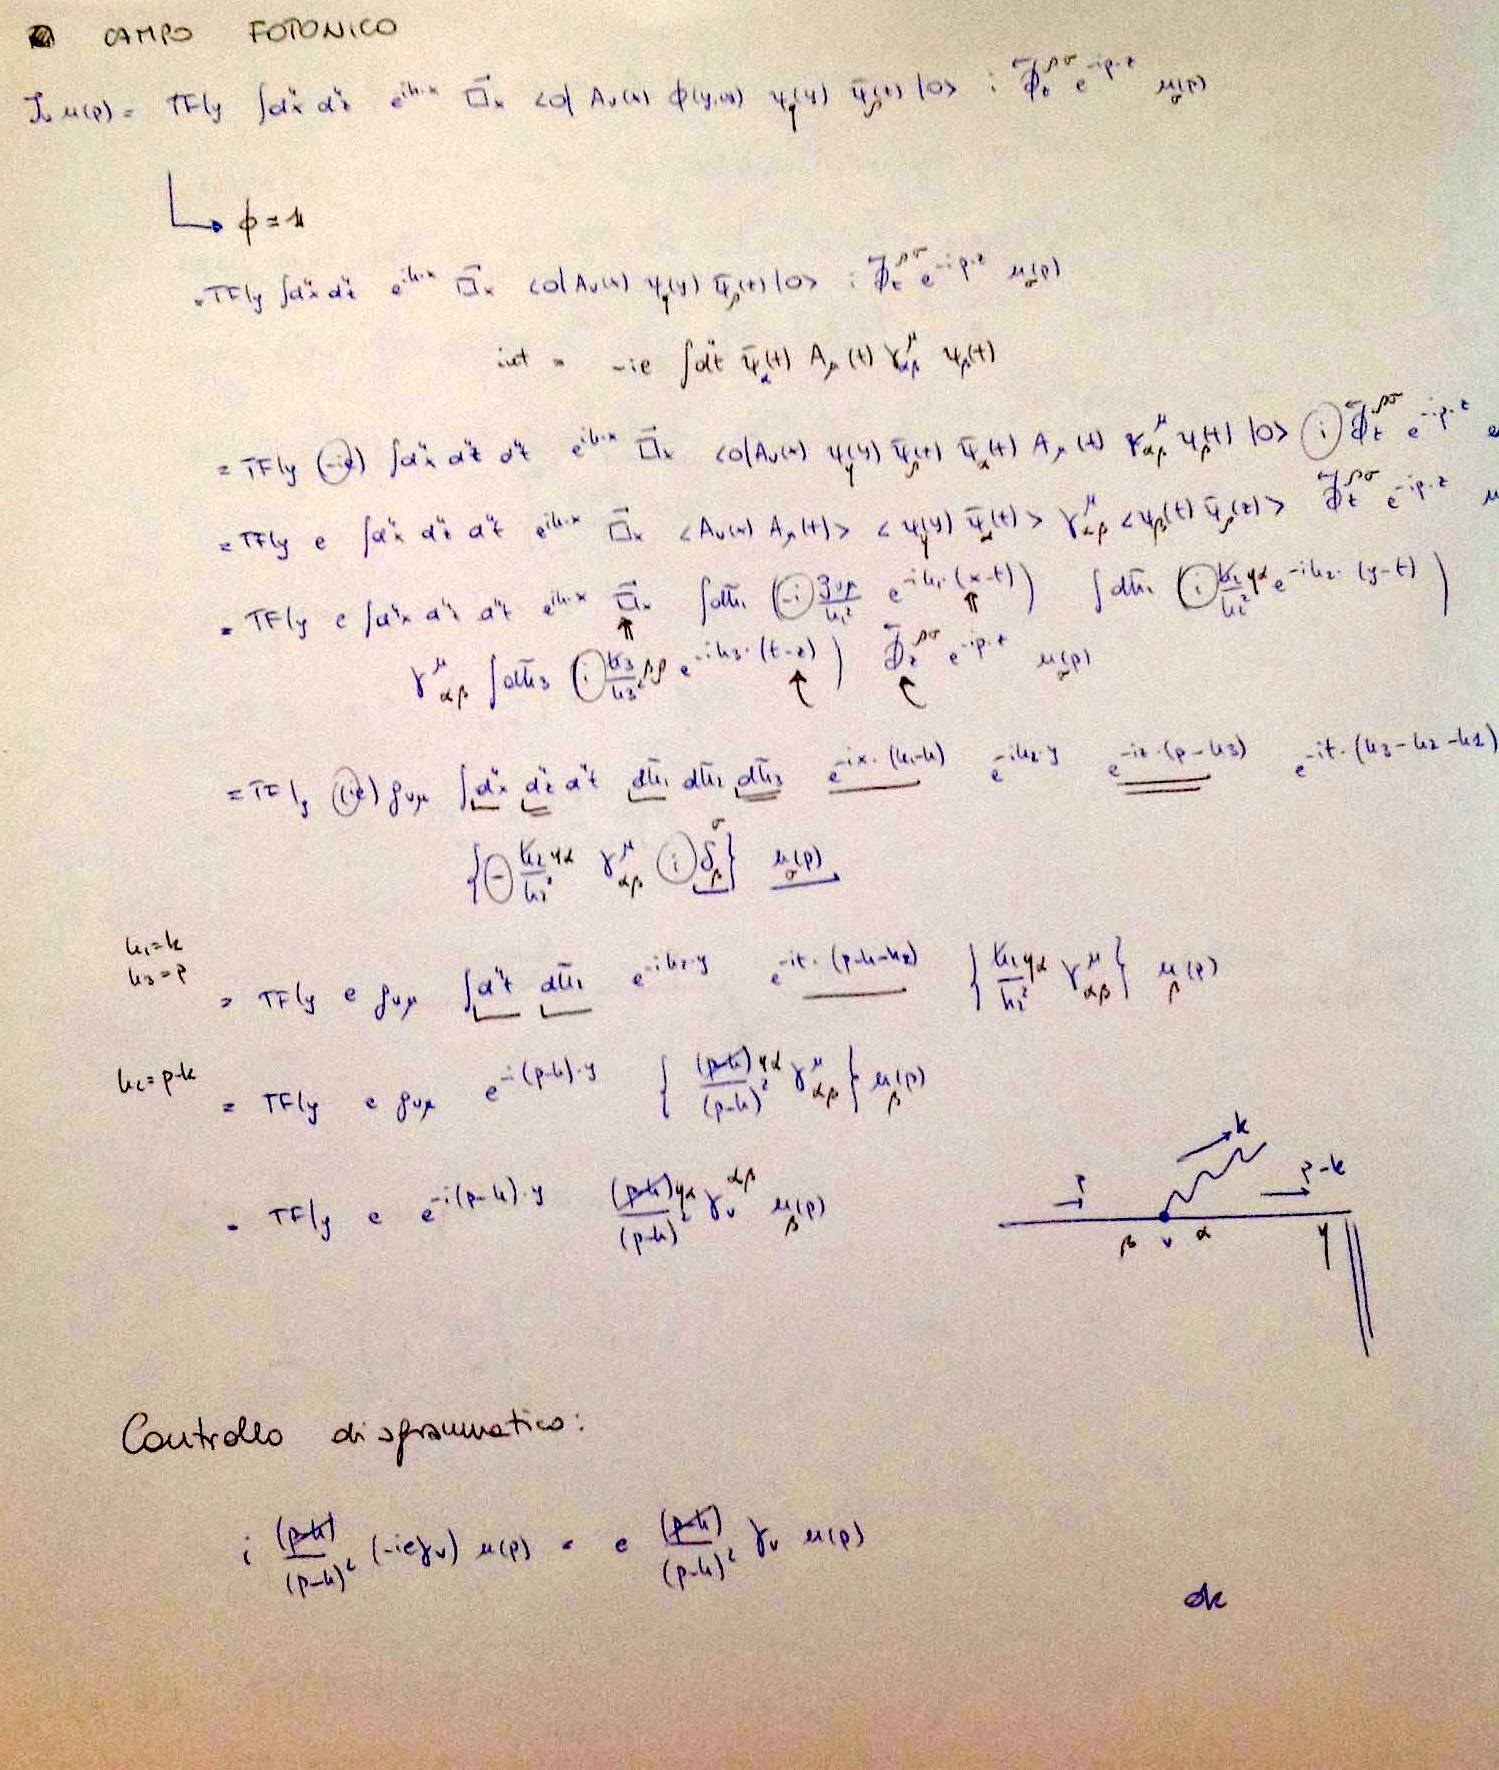 CAMPO FOTONICO
J_ν u(p) = TF|_y ∫d⁴x d⁴z e^{ik·x} □⃗_x <0| A_ν(x) ϕ(y,∞) ψ_γ(y) ψ̄_ρ(z) |0> i ∂̸⃖_z^{ρσ} e^{-ip·z} u_σ(p)
↳ ϕ = 1
= TF|_y ∫d⁴x d⁴z e^{ik·x} □⃗_x <0| A_ν(x) ψ_γ(y) ψ̄_ρ(z) |0> i ∂̸⃖_z^{ρσ} e^{-ip·z} u_σ(p)
int = -ie ∫d⁴t ψ̄_α(t) A_μ(t) γ^μ_{αβ} ψ_β(t)
= TF|_y (-ie) ∫d⁴x d⁴z d⁴t e^{ik·x} □⃗_x <0| A_ν(x) ψ_γ(y) ψ̄_ρ(z) ψ̄_α(t) A_μ(t) γ^μ_{αβ} ψ_β(t) |0> i ∂̸⃖_z^{ρσ} e^{-ip·z}
= TF|_y e ∫d⁴x d⁴z d⁴t e^{ik·x} □⃗_x <A_ν(x) A_μ(t)> <ψ_γ(y) ψ̄_α(t)> γ^μ_{αβ} <ψ_β(t) ψ̄_ρ(z)> ∂̸⃖_z^{ρσ} e^{-ip·z} u
= TF|_y e ∫d⁴x d⁴z d⁴t e^{ik·x} □⃗_x ∫dk̃₁ (-i g_{νμ}/k₁² e^{-ik₁·(x-t)}) ∫dk̃₂ (i k̸₂^{γα}/k₂² e^{-ik₂·(y-t)})
γ^μ_{αβ} ∫dk̃₃ (i k̸₃^{βρ}/k₃² e^{-ik₃·(t-z)}) ∂̸⃖_z^{ρσ} e^{-ip·z} u_σ(p)
= TF|_y (ie) g_{νμ} ∫d⁴x d⁴z d⁴t dk̃₁ dk̃₂ dk̃₃ e^{-ix·(k₁-k)} e^{-ik₂·y} e^{-iz·(p-k₃)} e^{-it·(k₃-k₂-k₁)}
{- k̸₂^{γα}/k₂² γ^μ_{αβ} i δ_β^σ} u_σ(p)
k₁=k
k₃=p
= TF|_y e g_{νμ} ∫d⁴t dk̃₂ e^{-ik₂·y} e^{-it·(p-k-k₂)} {k̸₂^{γα}/k₂² γ^μ_{αβ}} u_β(p)
k₂=p-k
= TF|_y e g_{νμ} e^{-i(p-k)·y} {(p̸-k̸)^{γα}/(p-k)² γ^μ_{αβ}} u_β(p)
= TF|_y e e^{-i(p-k)·y} (p̸-k̸)^{γα}/(p-k)² γ_ν^{αβ} u_β(p)
p k p-k
β ν α γ
Controllo diagrammatico:
i (p̸-k̸)/(p-k)² (-ieγ_ν) u(p) = e (p̸-k̸)/(p-k)² γ_ν u(p)
ok